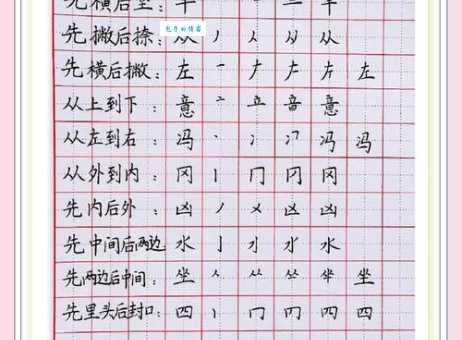 先横后竖：干 一 二 干
包子的博客
先撇后捺：从 丿 人 从 从
先横后撇：左 一 ナ 𠂇 左 左
从上到下：意 亠 立 音 意
从左到右：冯 丶 冫 冯 冯
从外到内：冈 丨 冂 冈 冈
先内后外：凶 丿 乂 凶 凶
先中间后两边 水 亅 水 水
先两边后中间：坐 人 从 坐 坐
先里头后封口：四 丨 冂 四 四